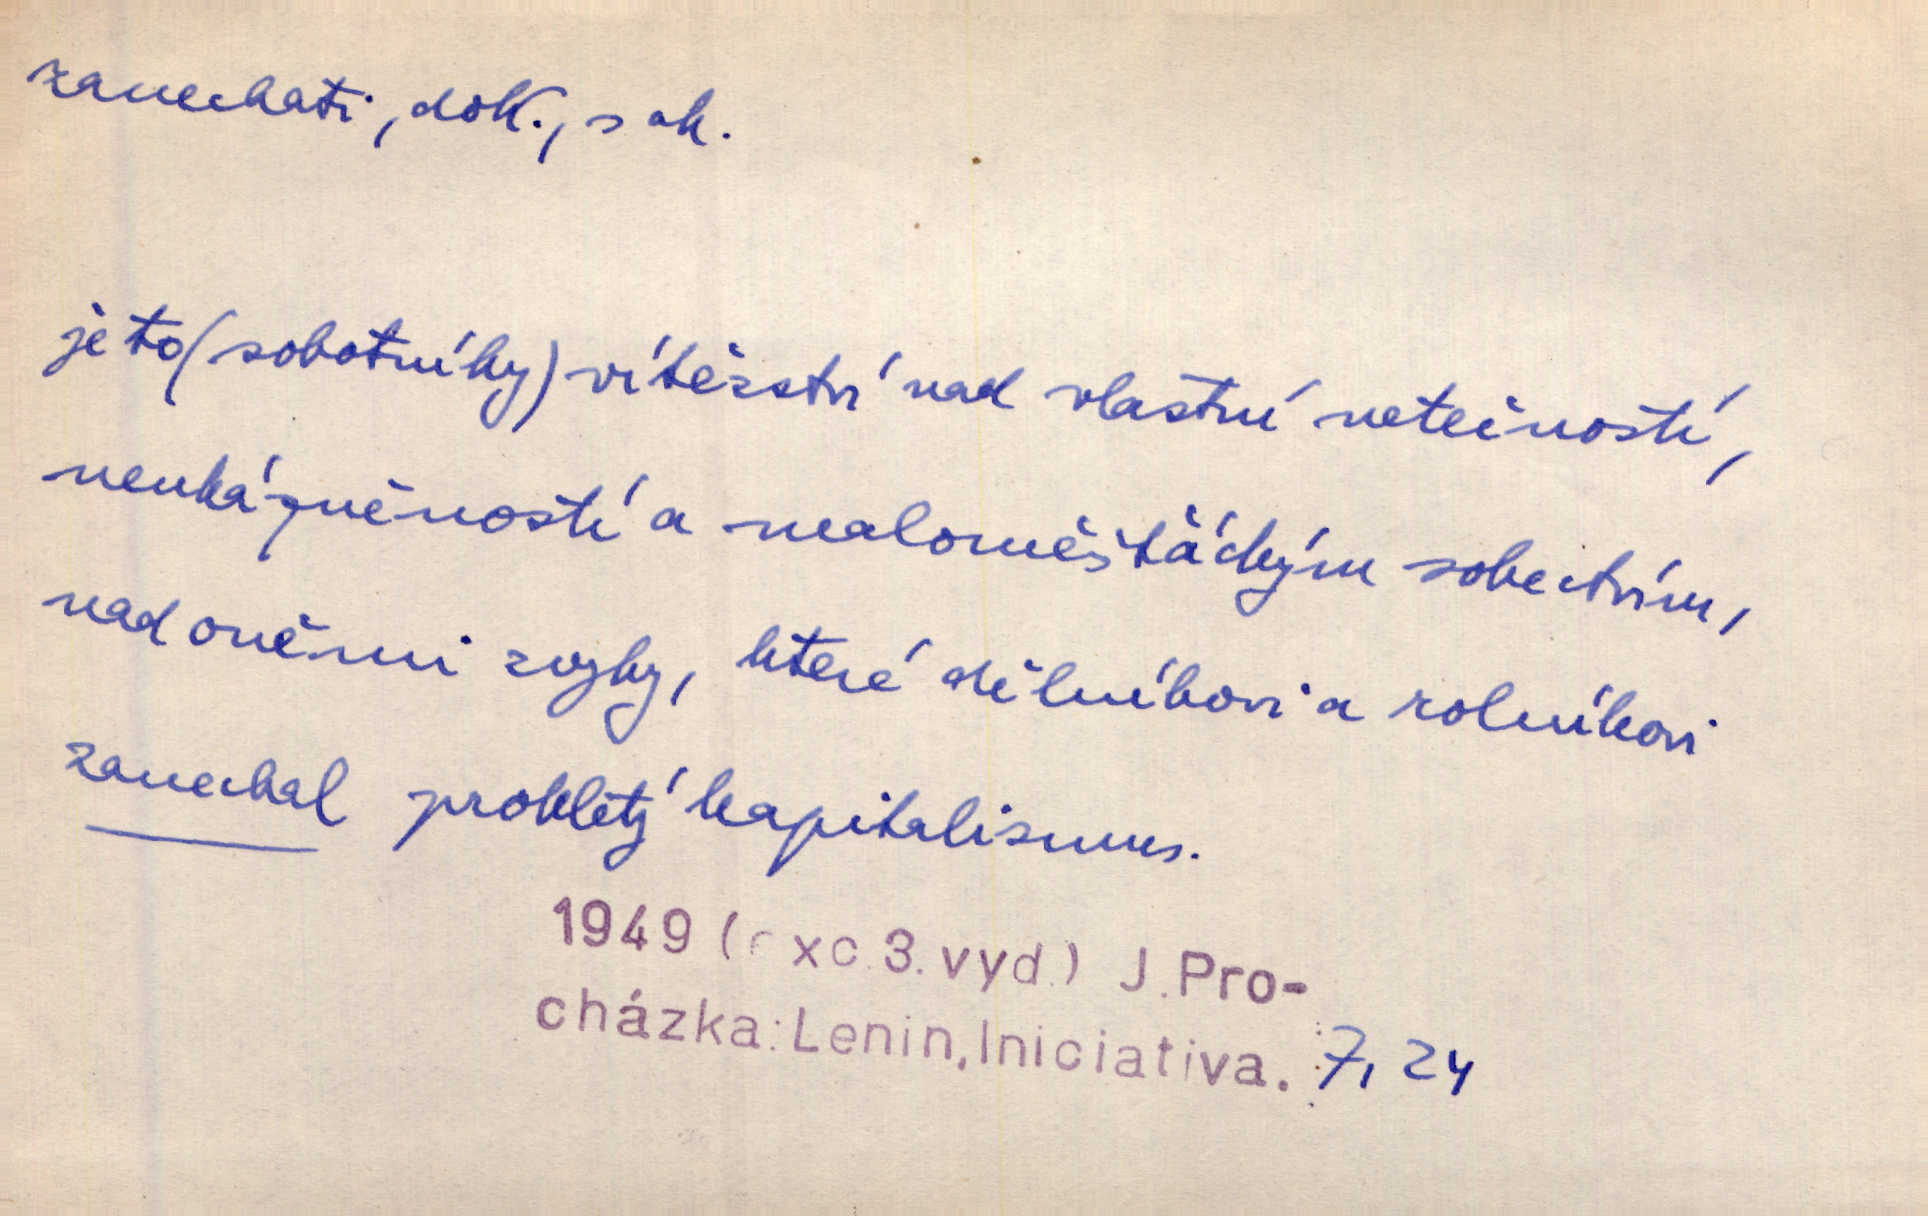 zanechati, dok., s ak.
je to (sobotníky) vítězství nad vlastní netečností,
neukázněností a maloměšťáckým sobectvím,
nad oněmi zvyky, které dělníkovi a rolníkovi
zanechal prokletý kapitalismus.
1949 (r xc. 3. vyd.) J. Pro-
cházka: Lenin, Iniciativa. 7, 24